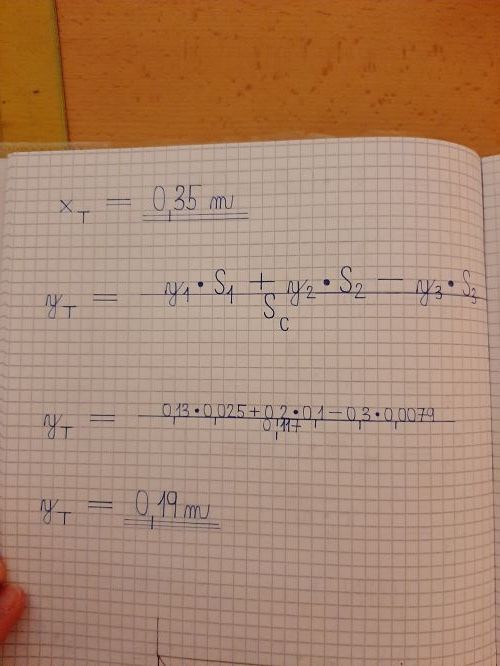 x_T = 0,35 m
y_T = (y_1 • S_1 + y_2 • S_2 − y_3 • S_3) / S_c
y_T = (0,13 • 0,025 + 0,2 • 0,1 − 0,3 • 0,0079) / 0,117
y_T = 0,19 m